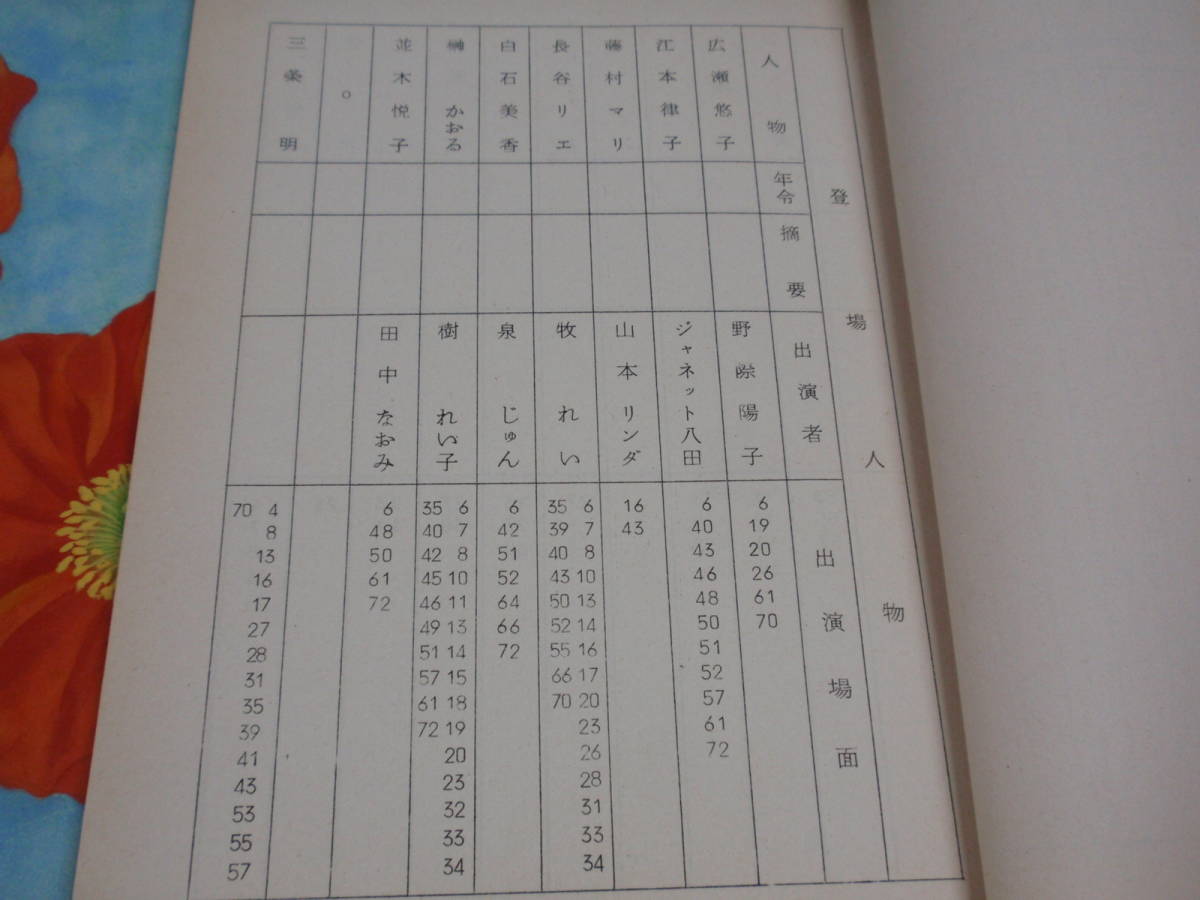 登場人物
人物
年令
摘要
出演者
出演場面
広瀬悠子
野際陽子
6
19
20
26
61
70
江本律子
ジャネット八田
6
40
43
46
48
50
51
52
57
61
72
藤村マリ
山本リンダ
16
43
長谷リエ
牧れい
6
7
8
10
13
14
16
17
20
23
26
28
31
33
34
35
39
40
43
50
52
55
66
70
白石美香
泉じゅん
6
42
51
52
64
66
72
榊かおる
樹れい子
6
7
8
10
11
13
14
15
18
19
20
23
32
33
34
35
40
42
45
46
49
51
57
61
72
並木悦子
田中なおみ
6
48
50
61
72
○
三条明
4
8
13
16
17
27
28
31
35
39
41
43
53
55
57
70